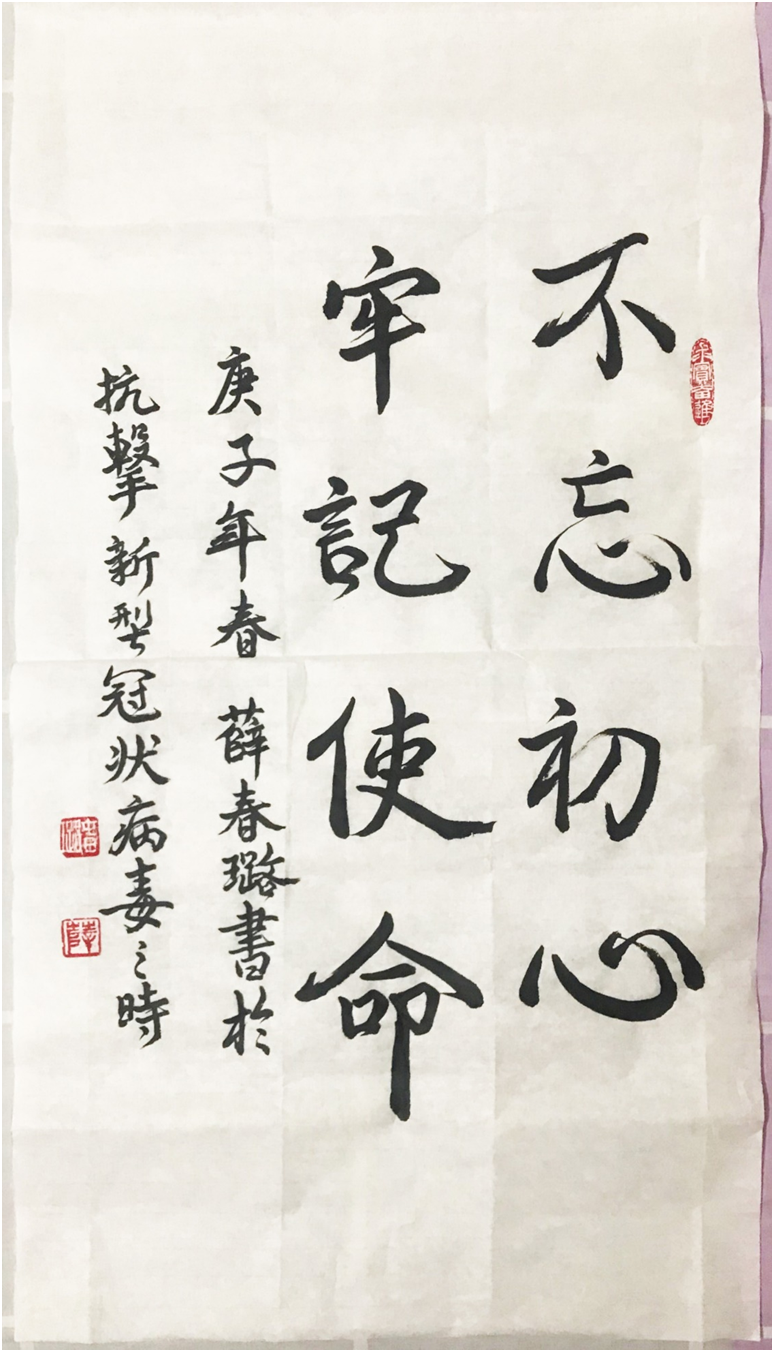 不忘初心
牢記使命
庚子年春 薛春璐書於
抗擊新型冠狀病毒之時